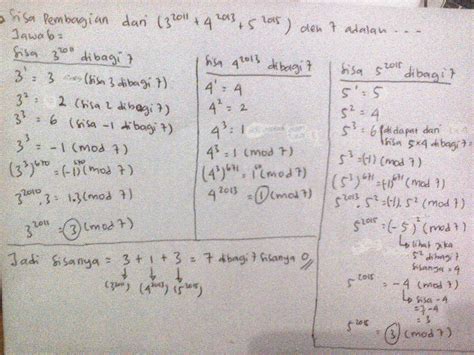 Sisa Pembagian dari (3^2011 + 4^2013 + 5^2015) oleh 7 adalah ...
Jawab =
Sisa 3^2011 dibagi 7
3^1 = 3 (sisa 3 dibagi 7)
3^2 = 2 (sisa 2 dibagi 7)
3^3 = 6 (sisa -1 dibagi 7)
3^3 = -1 (mod 7)
(3^3)^670 = (-1)^670 (mod 7)
3^2010 . 3 = 1.3 (mod 7)
3^2011 = 3 (mod 7)
Sisa 4^2013 dibagi 7
4^1 = 4
4^2 = 2
4^3 = 1
4^3 = 1 (mod 7)
(4^3)^671 = 1 (mod 7)
4^2013 = 1 (mod 7)
Sisa 5^2015 dibagi 7
5^1 = 5
5^2 = 4
5^3 = 6 (didapat dari
sisa 5x4 dibagi 7=
5^3 = (-1) (mod 7)
(5^3)^671 = (-1)^671 (mod 7)
5^2013 . 5^2 = (-1) . 5^2 (mod 7)
5^2015 = (-5)^2 (mod 7)
lihat jika
5^2 dibagi 7
sisanya = 4
5^2015 = -4 (mod 7)
sisa -4
= 7-4
= 3
5^2015 = 3 (mod 7)
Jadi sisanya = 3 + 1 + 3 = 7 dibagi 7 sisanya 0
(3^2011) (4^2013) (5^2015)